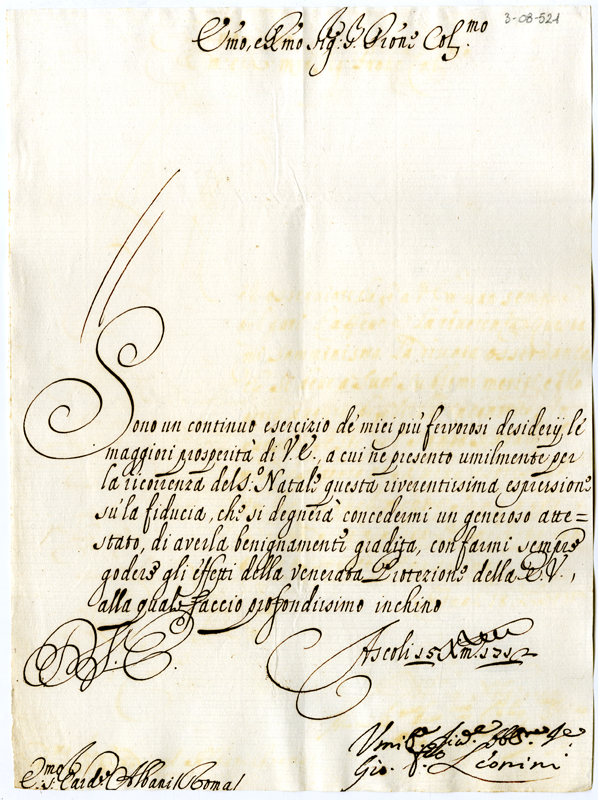 3-08-521
Em̃o, e Rm̃o Sig.r P.rone Col.mo
Sono un continuo esercizio de miei più fervorosi desiderij le
maggiori prosperità di V. E., a cui ne presento umilmente per
la ricorrenza del S.o Natale questa riverentissima espressione
sù la fiducia, che si degnerà concedermi un generoso atte=
stato, di averla benignamente gradita, con farmi sempre
godere gli effetti della venerata Protezione della E. V.,
alla quale faccio profondissimo inchino
Ascoli 15 Xm. 1712
Gio. Leonini
Card. Albani Roma